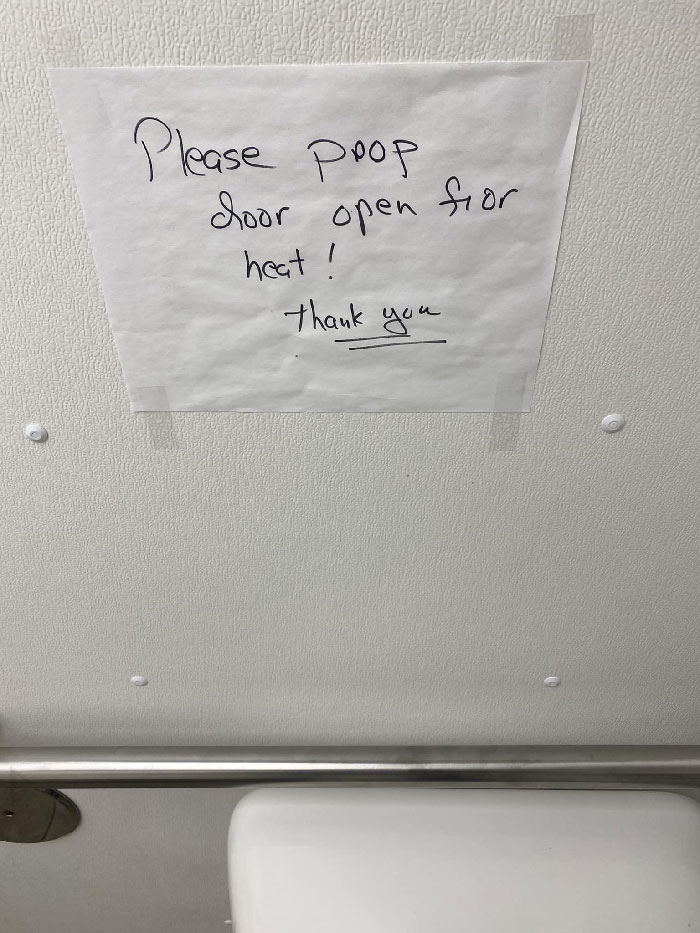 Please prop
door open for
heat!
Thank you